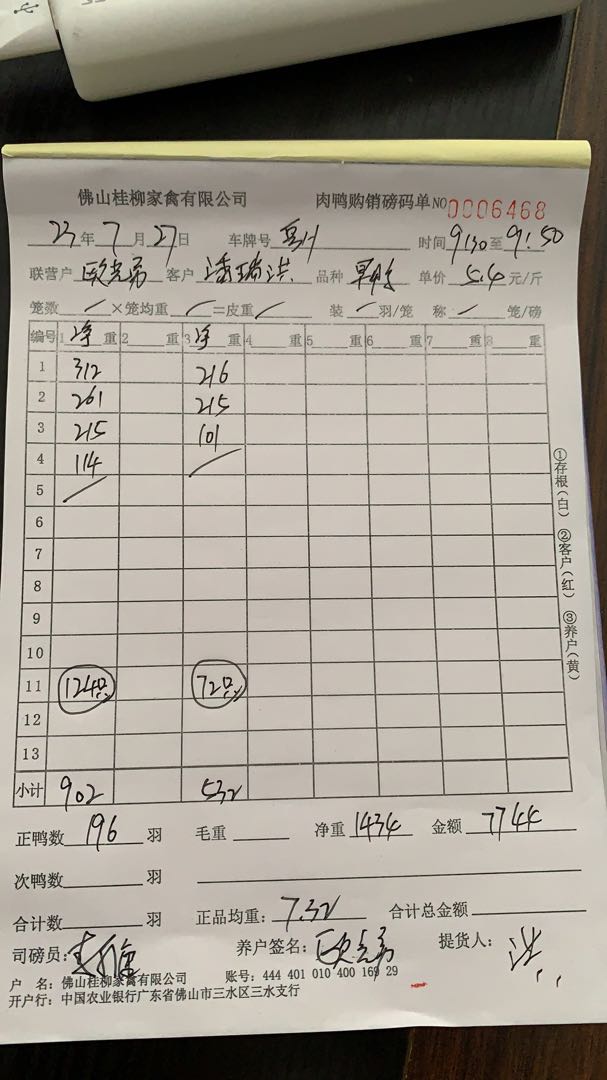 佛山桂柳家禽有限公司 肉鸭购销磅码单 NO 0006468
23年 7月 27日 车牌号 时间 9:30 至 9:50
联营户 客户 潘瑞洪 品种 单价 5.4 元/斤
笼数 / ×笼均重 / =皮重 / 装 / 羽/笼 称 / 笼/磅
编号 1 净 重 2 重 3 净 重 4 重 5 重 6 重 7 重 8 重
1 312 216
2 261 215
3 215 101
4 114 /
5 /
6
7
8
9
10
11 124只 72只
12
13
小计 902 532
正鸭数 196 羽 毛重 净重 1434 金额 7744
次鸭数 羽
合计数 羽 正品均重: 7.32 合计总金额
司磅员: 养户签名: 提货人: 洪
户 名: 佛山桂柳家禽有限公司 账号: 444 401 010 400 169 29
开户行: 中国农业银行广东省佛山市三水区三水支行
①存根(白) ②客户(红) ③养户(黄)